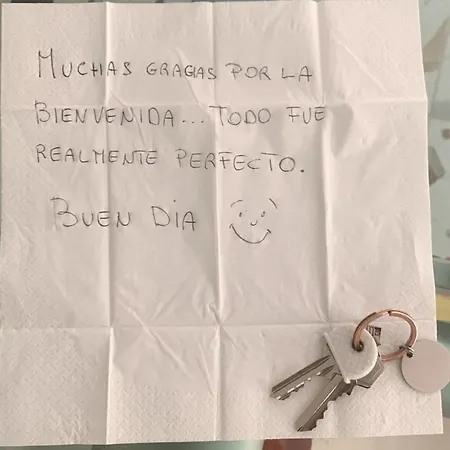 MUCHAS GRAGIAS POR LA
BIENVENIDA... TODO FUE
REALMENTE PERFECTO.
BUEN DIA